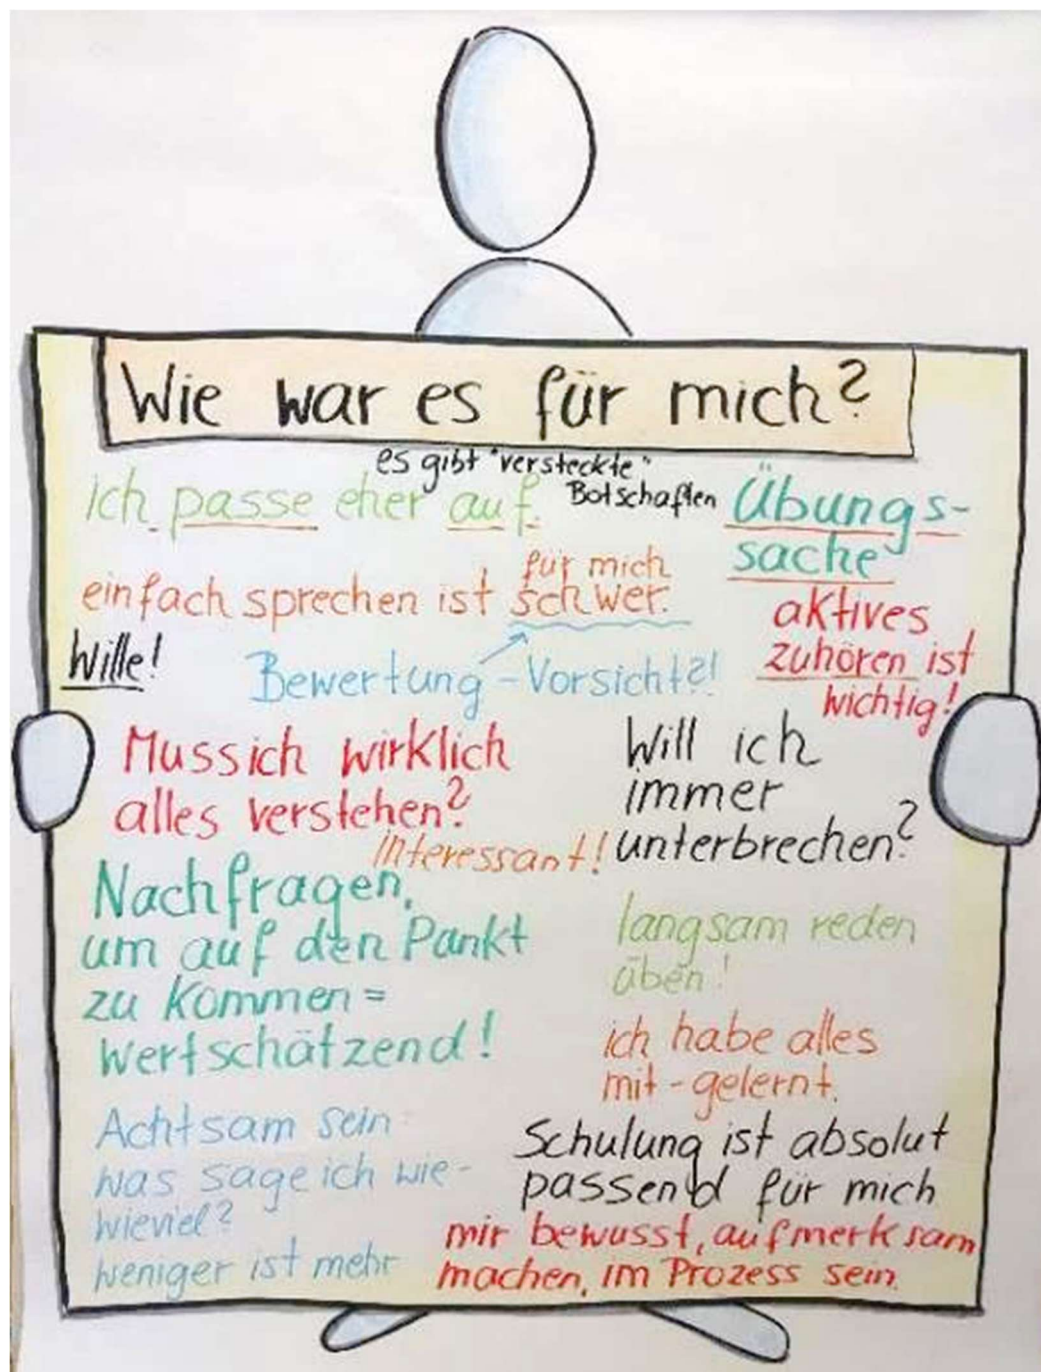 Wie war es für mich?
es gibt "versteckte"
Botschaften
ich passe eher auf.
Übungs-
sache
für mich
einfach sprechen ist schwer.
aktives
zuhören ist
wichtig!
Wille!
Bewertung - Vorsicht?!
Muss ich wirklich
alles verstehen?
Will ich
immer
unterbrechen?
Interessant!
Nachfragen,
um auf den Punkt
zu kommen =
wertschätzend!
langsam reden
üben!
ich habe alles
mit-gelernt.
Achtsam sein:
was sage ich wie-
wieviel?
weniger ist mehr
Schulung ist absolut
passend für mich
mir bewusst, aufmerksam
machen, im Prozess sein.